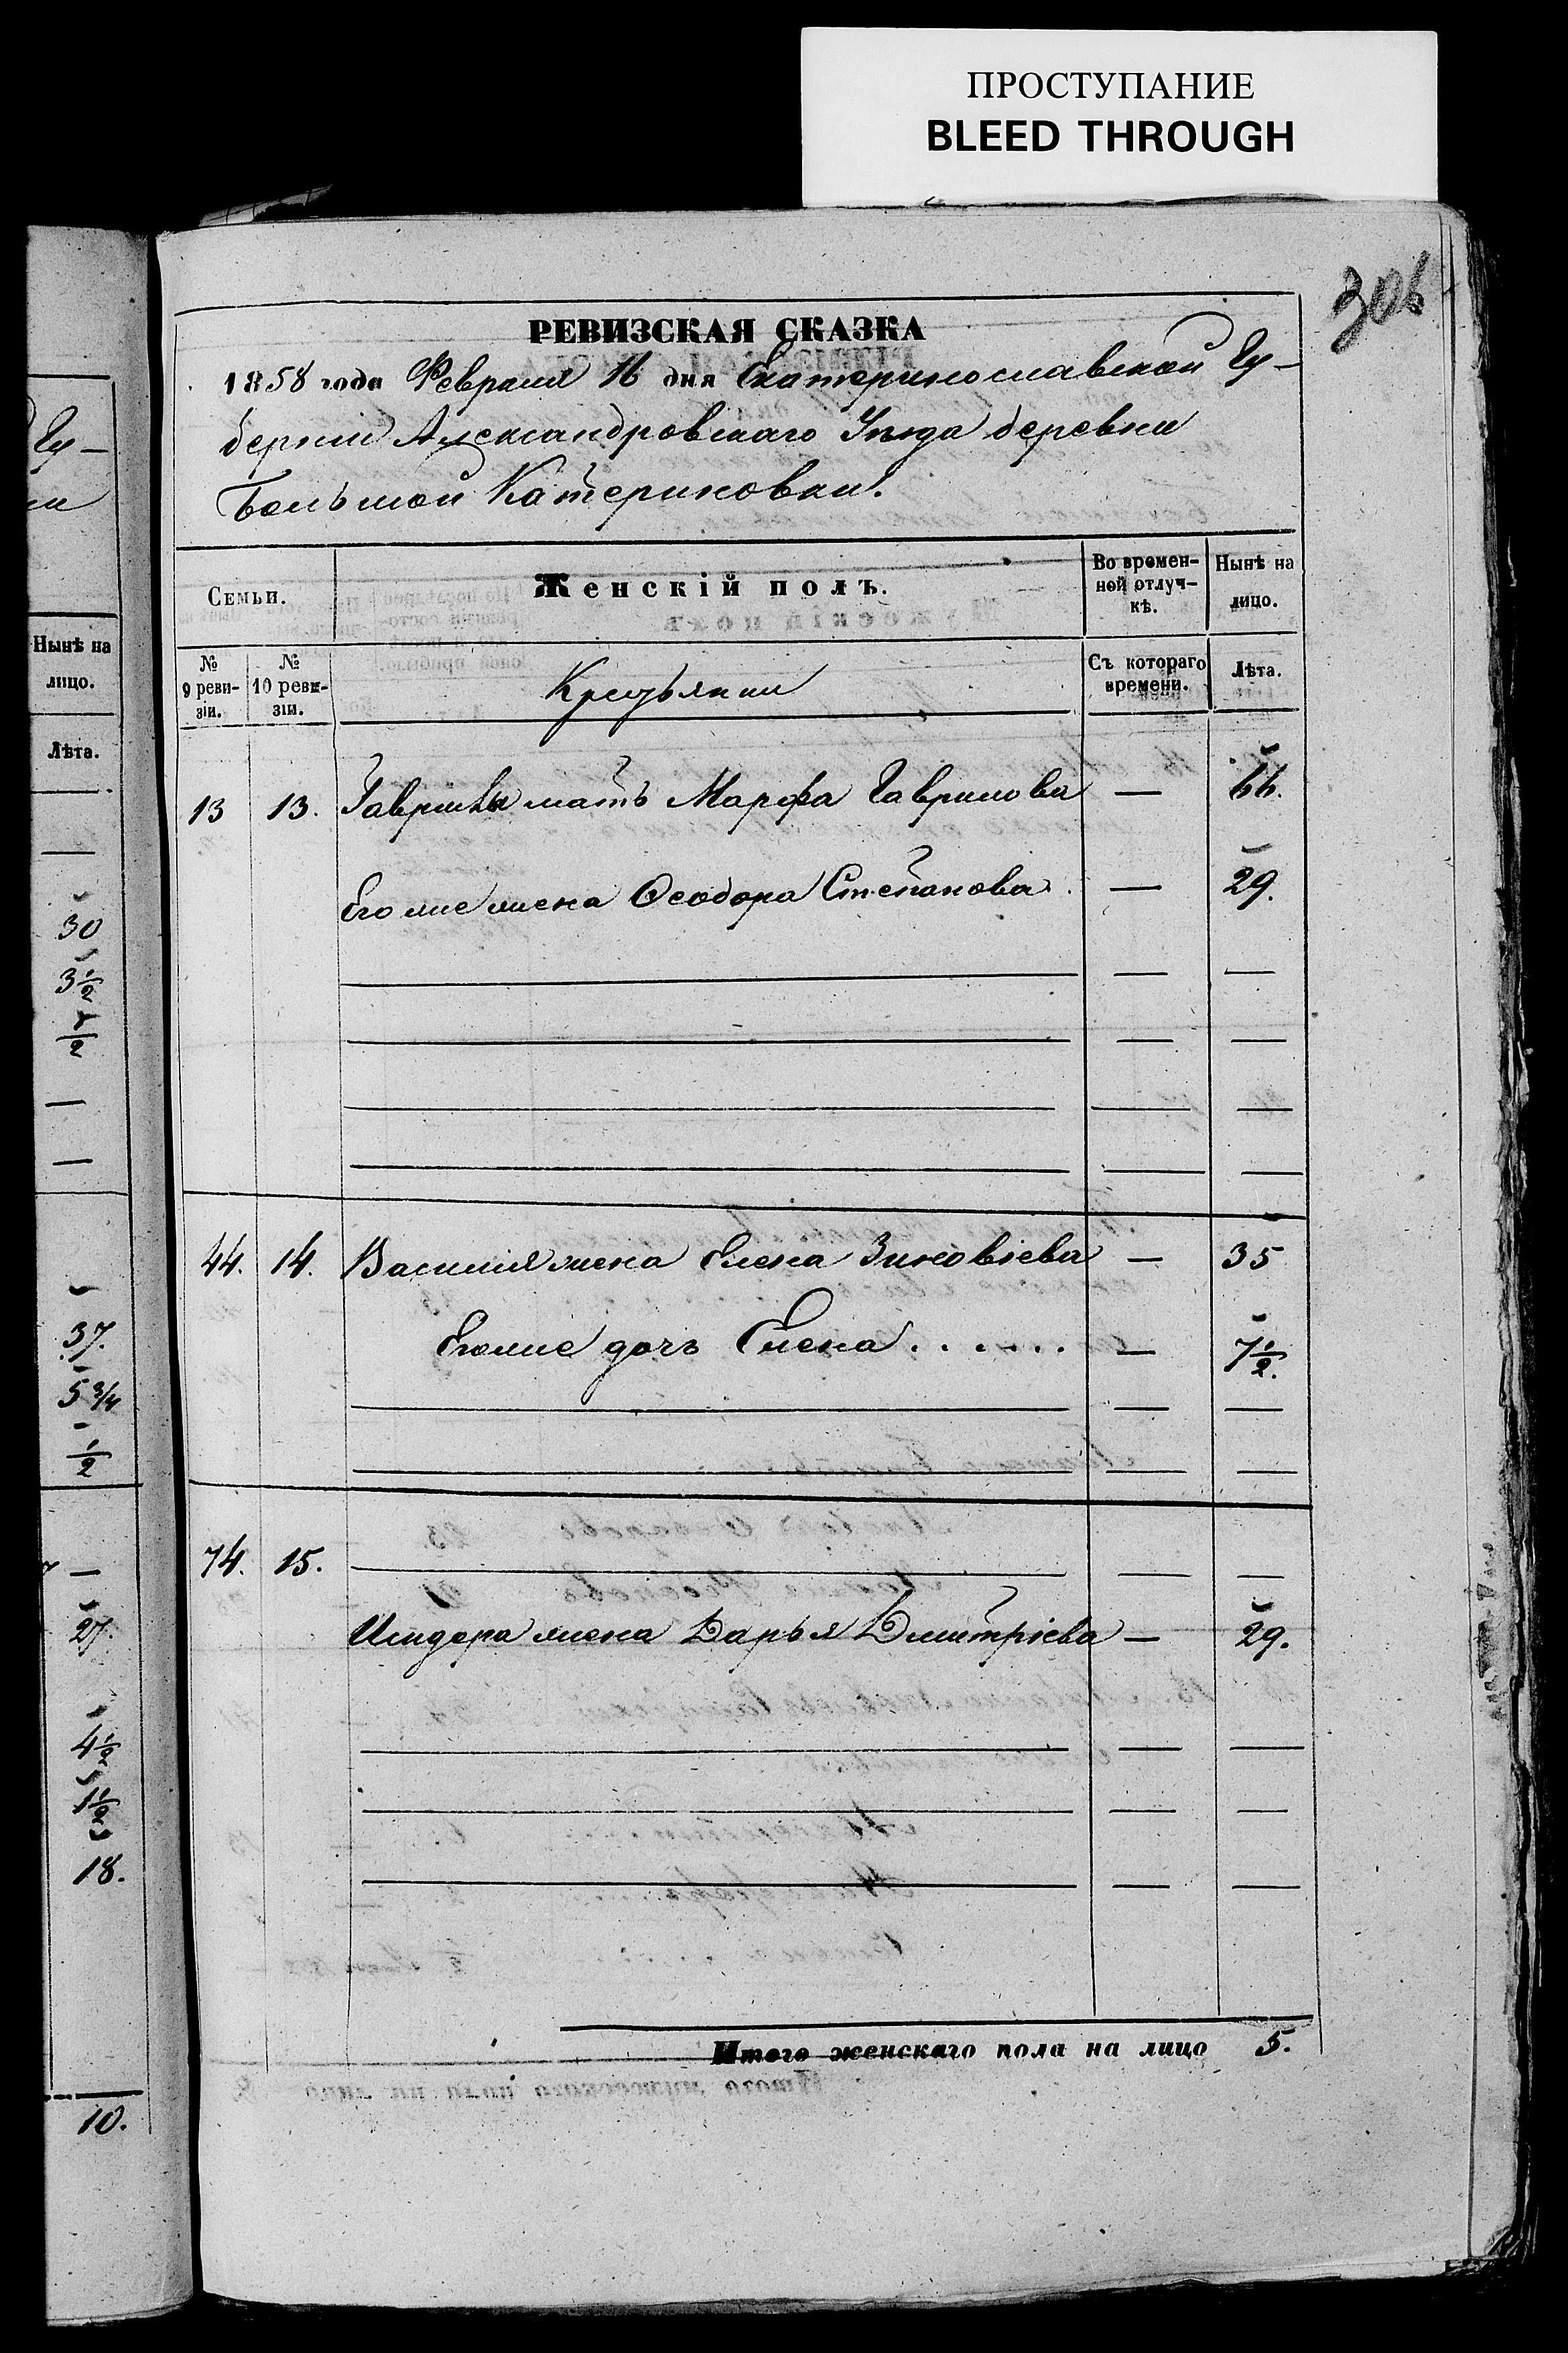 ПРОСТУПАНИЕ
BLEED THROUGH
306
РЕВИЗСКАЯ СКАЗКА
1858 года Февраля 16 дня Екатеринославской Гу-
берніи Александровскаго Уѣзда деревни
Большой Катериновки.
Семьи.
Женскій полъ.
Во времен-
ной отлуч-
кѣ.
Нынѣ на
лицо.
№
9 реви-
зіи.
№
10 реви-
зіи.
Крестьянки
Съ котораго
времени.
Лѣта.
13 13. Гаврилы мать Марфа Гаврилова — 66.
Его же жена Ѳеодора Степанова. — 29.
44. 14. Василія жена Елена Зиновіева — 35
Его же дочь Елена . . . . . . — 7 1/2.
74. 15.
Исидора жена Дарья Дмитріева — 29.
Итого женскаго пола на лицо 5.
Гу-
Нынѣ на
лицо.
Лѣта.
30
3 1/2
1/2
37.
5 3/4
1/2
27.
4 1/2
1 1/2
18.
10.